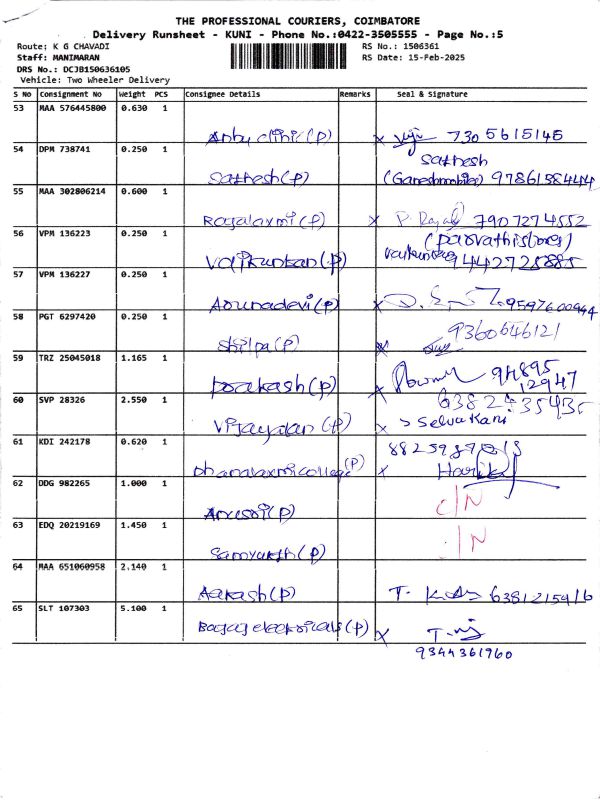 THE PROFESSIONAL COURIERS, COIMBATORE
Delivery Runsheet - KUNI - Phone No.:0422-3505555 - Page No.:5
Route: K G CHAVADI RS No.: 1506361
Staff: MANIMARAN RS Date: 15-Feb-2025
DRS No.: DCJB150636105
Vehicle: Two Wheeler Delivery
S No Consignment No Weight PCS Consignee Details Remarks Seal & Signature
53 MAA 576445800 0.630 1
Anbu clinic(P) x 730 5615145
54 DPM 738741 0.250 1 Sathesh
Sathesh(P) 9786158444
55 MAA 302806214 0.600 1
Rajalaxmi(P) x P. Rajal 7907274552
56 VPM 136223 0.250 1 (parvathistores)
Vaikuntan(P) 9442728885
57 VPM 136227 0.250 1
Arunadevi(P) x 9597600944
58 PGT 6297420 0.250 1 9360646121
Shilpa(P) x
59 TRZ 25045018 1.165 1 94895
prakash(P) x 12947
60 SVP 28326 2.550 1
Vijayalan(P) x Selvakani
61 KDI 242178 0.620 1
Dhanalaxmi college(P) x Harik
62 DDG 982265 1.000 1 C/N
Arusri(P)
63 EDQ 20219169 1.450 1 /N
Samyukth(P)
64 MAA 651060958 2.140 1
Aakash(P) T. 6381215916
65 SLT 107303 5.100 1
Bagaj electricals(P) x
9344361960